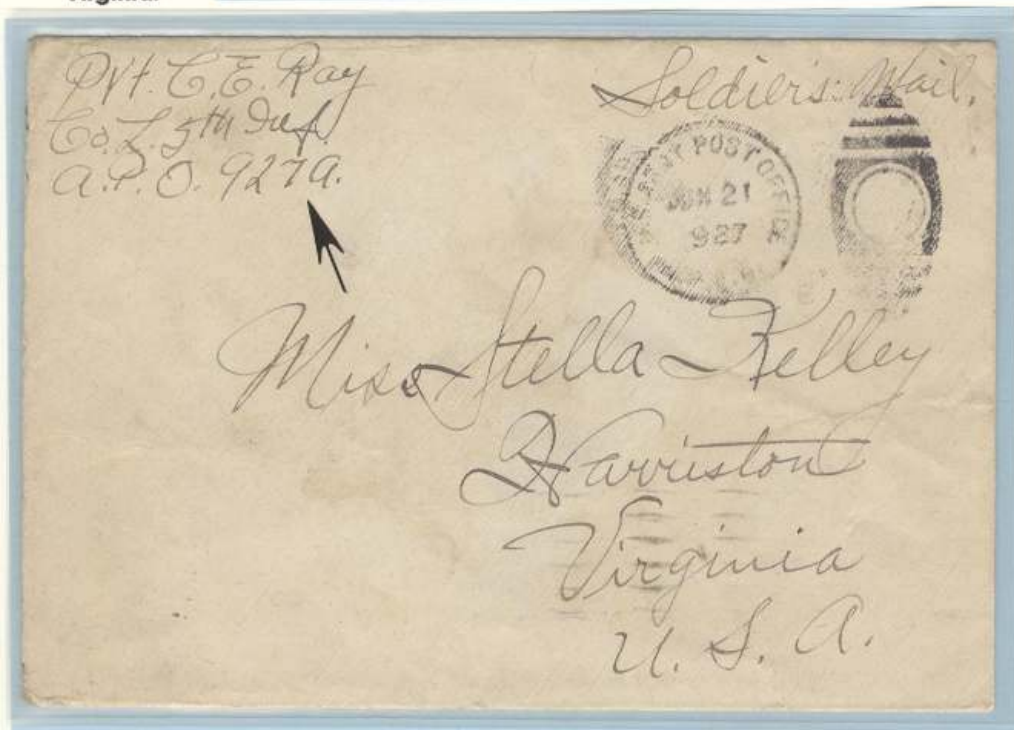 Pvt. C. E. Ray
Co. L. 5th Inf.
A.P.O. 927A.
Soldier's Mail.
POST OFFICE
JUN 21
927
Miss Stella Kelley
Harriston
Virginia
U. S. A.